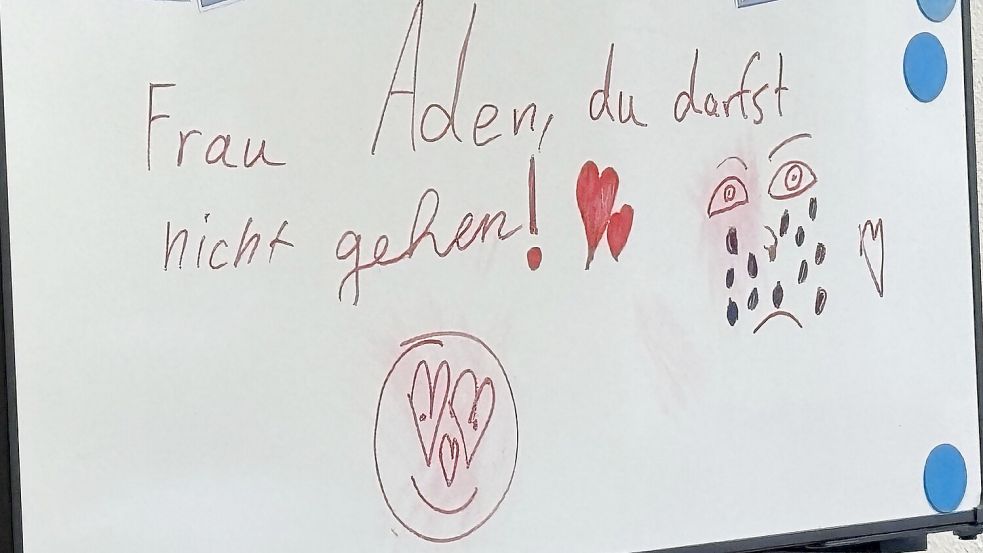 Frau Aden, du darfst
nicht gehen!